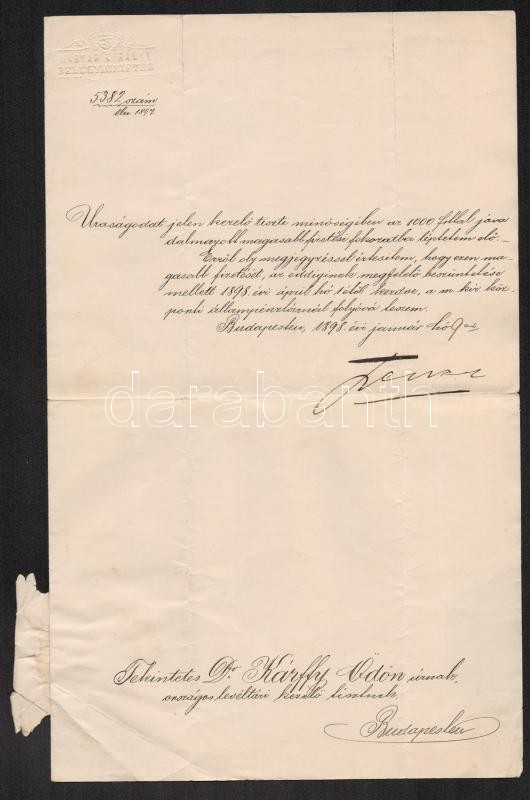 MAGYAR KIRÁLYI
BELÜGYMINISTER
5382 szám
eln 1897
Uraságodat jelen kezelő tiszti minőségében az 1000 fttal java
dalmazott magasabb fizetési fokozatba léptetem elő.-
Erről oly megjegyzéssel értesítem, hogy ezen ma-
gasabb fizetését, az eddiginek megfelelő beszüntetése
mellett 1898. évi április hó 1étől kezdve, a m. kir. köz-
ponti állampénztárnál folyóvá teszem.
Budapesten, 1898. évi január hó 9-én
darabanth
Tekintetes Dr Kárffy Ödön úrnak,
országos levéltári kezelő tisztnek.
Budapesten